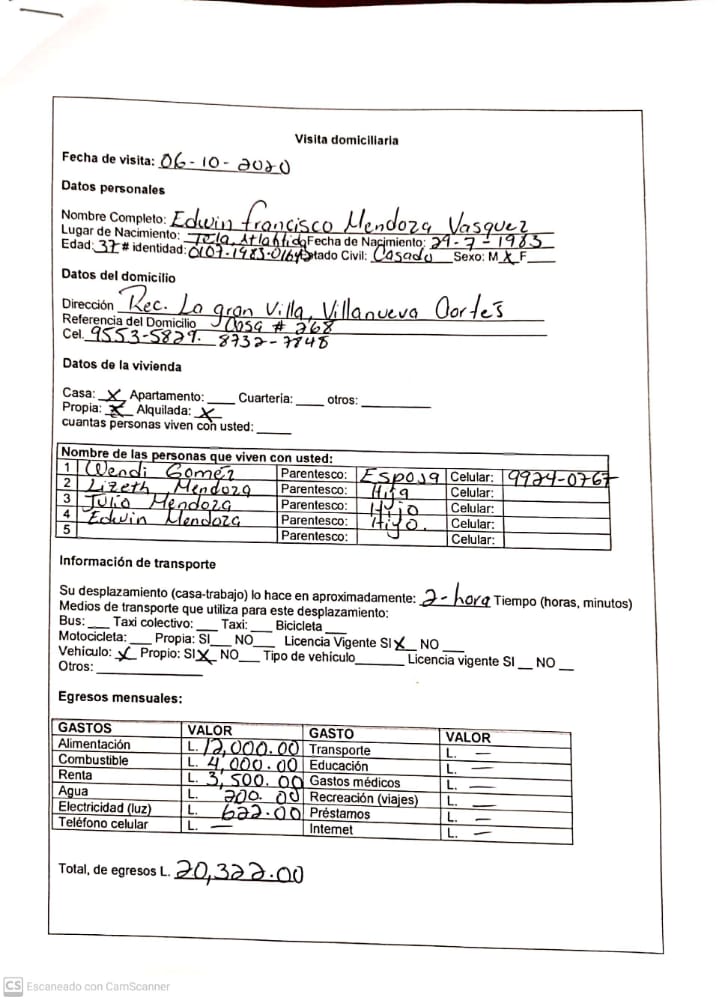 Visita domiciliaria
Fecha de visita: 06-10-2020
Datos personales
Nombre Completo: Edwin Francisco Mendoza Vasquez
Lugar de Nacimiento: Tela, Atlantida Fecha de Nacimiento: 29-7-1983
Edad: 37 # identidad: 0107-1983-0164 stado Civil: Casado Sexo: M X F
Datos del domicilio
Dirección Rec. La gran Villa, Villanueva Cortés
Referencia del Domicilio Casa # 268
Cel. 9553-5829. 8732-7848
Datos de la vivienda
Casa: X Apartamento: ____ Cuarteria: ____ otros: ____
Propia: X Alquilada: X
cuantas personas viven con usted: ____
Nombre de las personas que viven con usted:
1 Wendi Gomez Parentesco: Esposa Celular: 9924-0767
2 Lizeth Mendoza Parentesco: Hija Celular:
3 Julio Mendoza Parentesco: Hijo Celular:
4 Edwin Mendoza Parentesco: Hijo. Celular:
5 Parentesco: Celular:
Información de transporte
Su desplazamiento (casa-trabajo) lo hace en aproximadamente: 2-hora Tiempo (horas, minutos)
Medios de transporte que utiliza para este desplazamiento:
Bus: ___ Taxi colectivo: ___ Taxi: ___ Bicicleta ___
Motocicleta: ___ Propia: SI ___ NO ___ Licencia Vigente SI X NO ___
Vehículo: X Propio: SI X NO ___ Tipo de vehículo ___ Licencia vigente SI __ NO __
Otros: ____
Egresos mensuales:
GASTOS VALOR GASTO VALOR
Alimentación L. 12,000.00 Transporte L. —
Combustible L. 4,000.00 Educación L. —
Renta L. 3,500.00 Gastos médicos L. —
Agua L. 200.00 Recreación (viajes) L. —
Electricidad (luz) L. 622.00 Préstamos L. —
Teléfono celular L. — Internet L. —
Total, de egresos L. 20,322.00
CS Escaneado con CamScanner